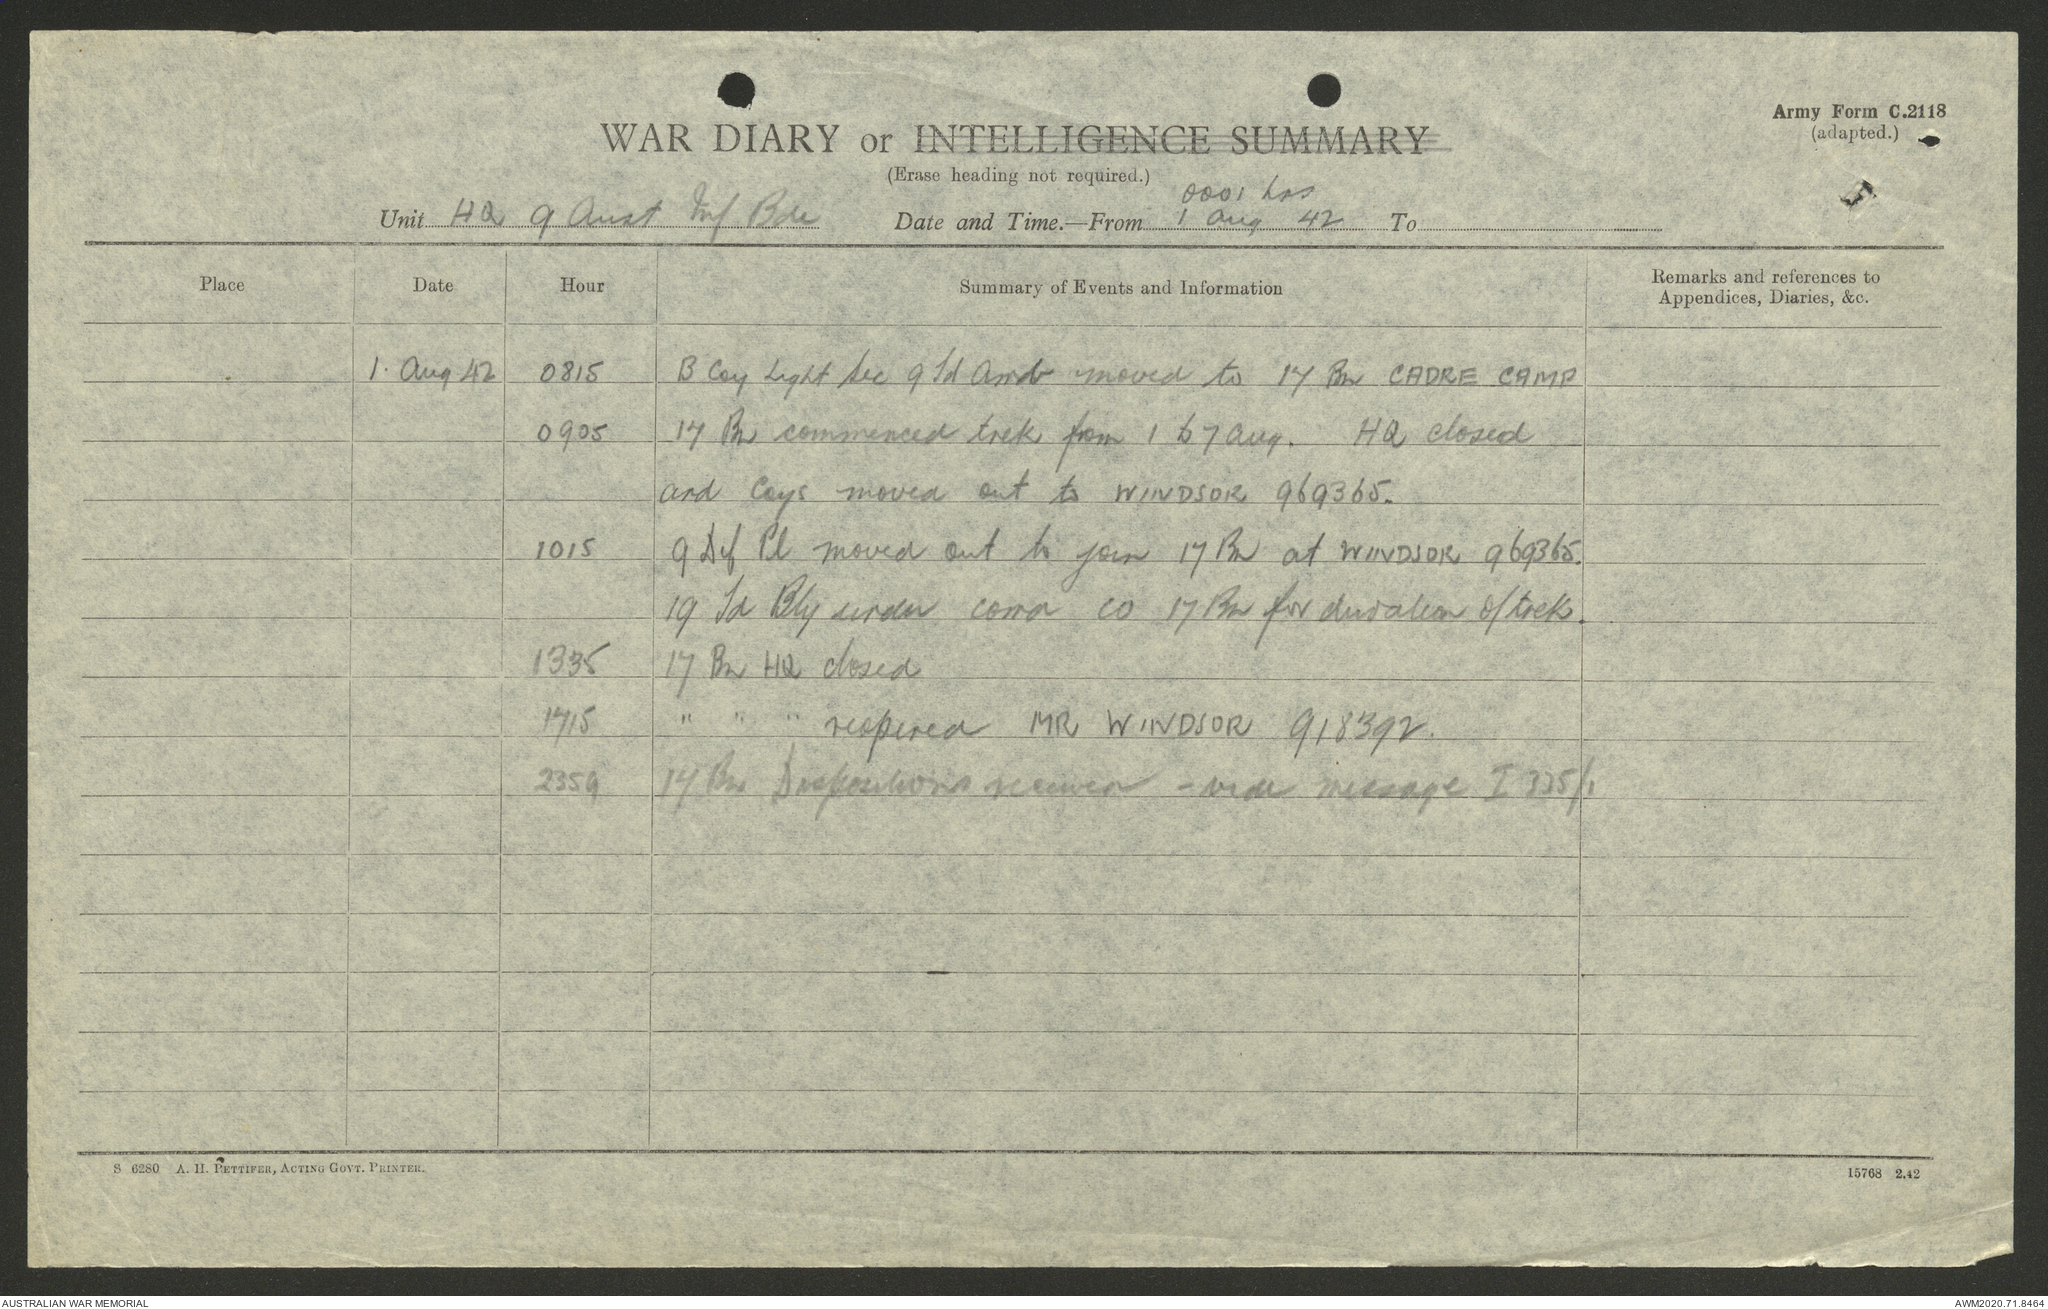 Army Form C.2118
(adapted.)
WAR DIARY or INTELLIGENCE SUMMARY
(Erase heading not required.)
Unit HQ 9 Aust Inf Bde Date and Time.—From 0001 hrs 1 Aug 42 To
Place Date Hour Summary of Events and Information Remarks and references to Appendices, Diaries, &c.
1 Aug 42 0815 B Coy Light Sec 9 Fd Amb moved to 17 Bn CADRE CAMP
0905 17 Bn commenced trek from 1 to 7 Aug. HQ closed
and Coys moved out to WINDSOR 969365.
1015 9 Def Pl moved out to join 17 Bn at WINDSOR 969365.
19 Fd Bty under comd CO 17 Bn for duration of trek.
1335 17 Bn HQ closed
1715 " " " reopened MR WINDSOR 918392.
2359 17 Bn Dispositions received - vide message I 335/1
S 6280 A. H. PETTIFER, ACTING GOVT. PRINTER.
15768 2.42
AUSTRALIAN WAR MEMORIAL
AWM2020.71.8464